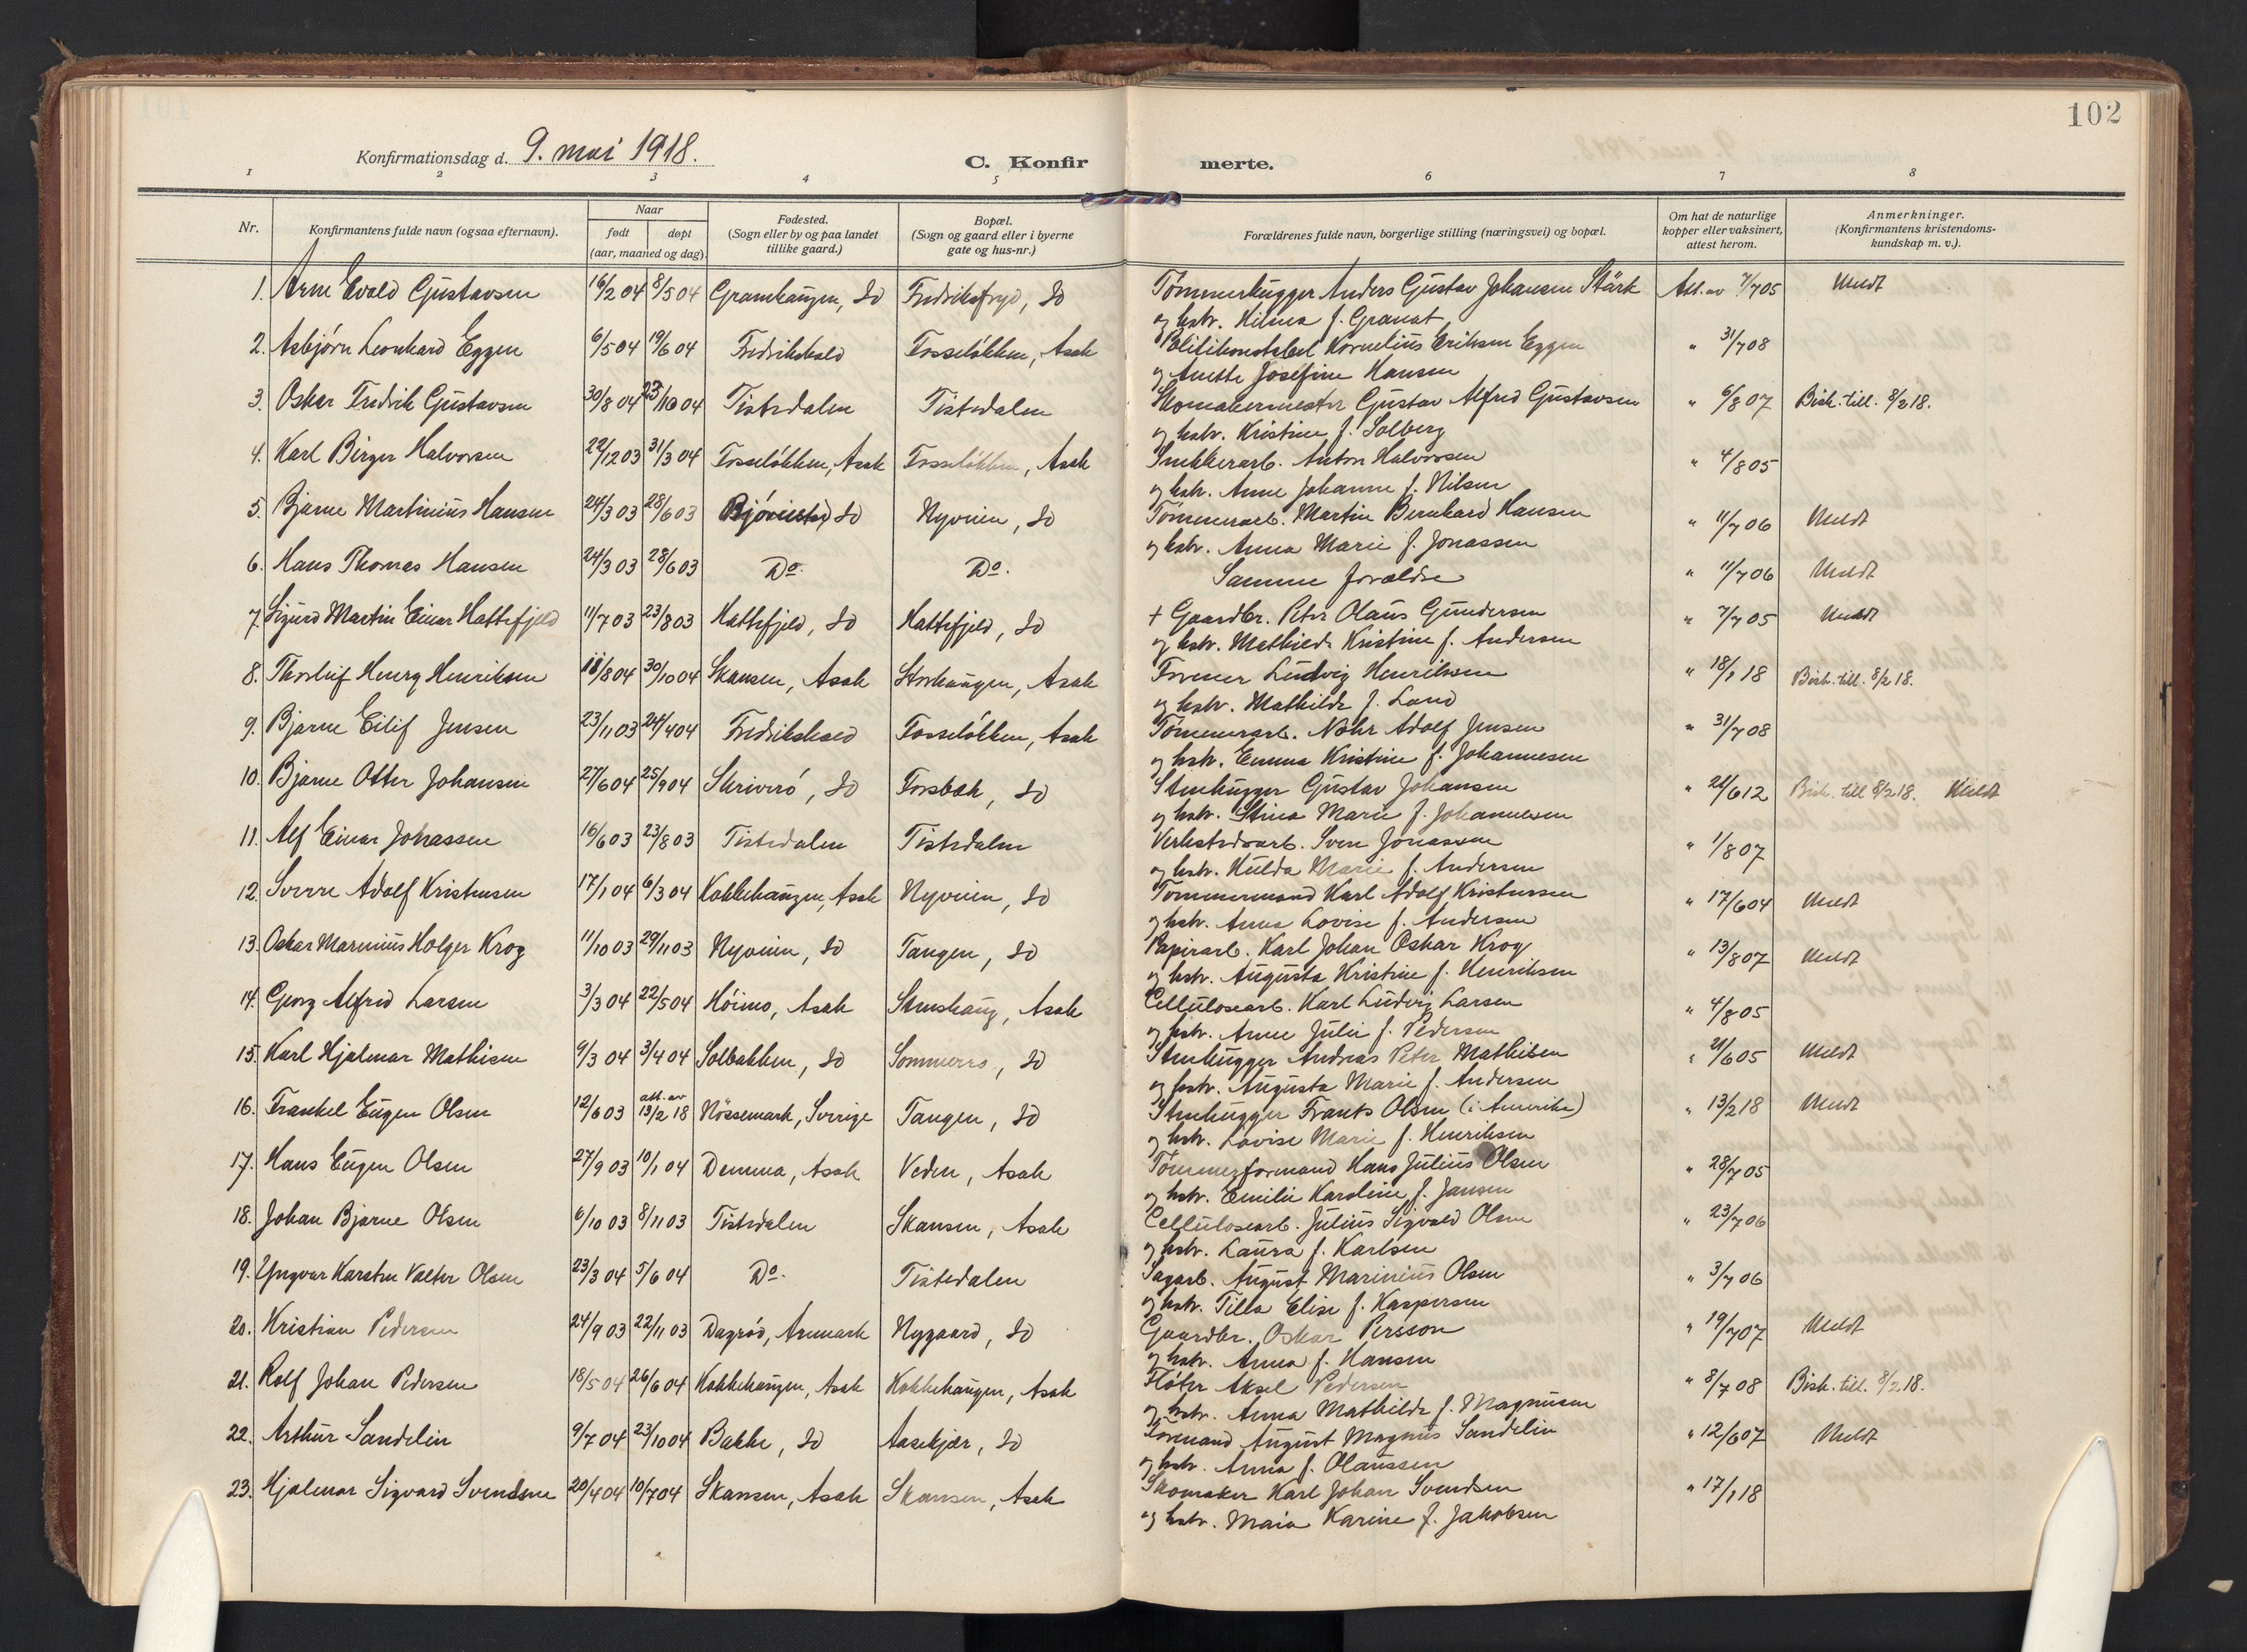 102
Konfirmationsdag d. 9. mai 1918.
C. Konfirmerte.
1 2 3 4 5 6 7 8
Nr.
Konfirmantens fulde navn (ogsaa efternavn).
Naar
født døpt
(aar, maaned og dag).
Fødested.
(Sogn eller by og paa landet
tillike gaard.)
Bopæl.
(Sogn og gaard eller i byerne
gate og hus-nr.)
Forældrenes fulde navn, borgerlige stilling (næringsvei) og bopæl.
Om hat de naturlige
kopper eller vaksinert,
attest herom.
Anmerkninger.
(Konfirmantens kristendoms-
kundskap m. v.).
1. Arne Evald Gustavsen 16/2 04 8/5 04 Gramhaugen, Id Fredriksfryd, Id Tømmerhugger Anders Gustav Johansen Stärk Att. av 7/7 05 Meldt
og hstr. Hilma f. Granat
2. Asbjørn Leonhard Eggen 6/5 04 19/6 04 Fredrikshald Fosseløkken, Asak Politikonstabel Kornelius Eriksen Eggen " 31/7 08
og Anette Josefine Hansen
3. Oskar Fredrik Gustavsen 30/8 04 23/10 04 Tistedalen Tistedalen Skomakermester Gustav Alfred Gustavsen " 6/8 07 Bisk. till. 8/2 18.
og hstr. Kristine f. Solberg
4. Karl Birger Halvorsen 22/12 03 31/3 04 Fosseløkken, Asak Fosseløkken, Asak Snekkerarb. Anton Halvorsen " 4/8 05
og hstr. Anne Johanne f. Nilsen
5. Bjarne Martinius Hansen 24/3 03 28/6 03 Bjørnestad Id Nyveien, Id Tømmerarb. Martin Bernhard Hansen " 11/7 06 Meldt
og hstr. Anna Marie f. Jonassen
6. Hans Thomas Hansen 24/3 03 28/6 03 Do. Do. Samme forældre " 11/7 06 Meldt
7. Sigurd Martin Einar Hattefjeld 11/7 03 23/8 03 Hattefjeld, Id Hattefjeld, Id + Gaardbr. Peter Olaus Gundersen " 7/7 05 Meldt
og hstr. Mathilde Kristine f. Andersen
8. Thorleif Henry Henriksen 18/8 04 30/10 04 Skansen, Asak Storhaugen, Asak Former Ludvig Henriksen " 18/1 18 Bisk. till. 8/2 18.
og hstr. Mathilde f. Lund
9. Bjarne Eilif Jensen 23/11 03 24/4 04 Fredrikshald Fosseløkken, Asak Tømmerarb. Nohr Adolf Jensen " 31/7 08
og hstr. Emma Kristine f. Johannesen
10. Bjarne Otter Johansen 27/6 04 25/9 04 Skriverø, Id Torsbæk, Id Stenhugger Gustav Johansen " 21/6 12 Bisk. till 8/2 18. Meldt
og hstr. Stina Marie f. Johannesen
11. Alf Einar Jonassen 16/6 03 23/8 03 Tistedalen Tistedalen Verkstedsarb. Sven Jonassen " 1/8 07
og hstr. Hulda Marie f. Andersen
12. Sverre Adolf Kristensen 17/1 04 6/3 04 Kokkehaugen, Asak Nyveien, Id Tømmermand Karl Adolf Kristensen " 17/6 04 Meldt
og hstr. Anna Lovise f. Andersen
13. Oskar Marinius Holger Krog 11/10 03 29/11 03 Nyveien, Id Tangen, Id Papirarb. Karl Johan Oskar Krog " 13/8 07 Meldt
og hstr. Augusta Kristine f. Henriksen
14. Georg Alfred Larsen 3/3 04 22/5 04 Høimo, Asak Stenshaug, Asak Cellulosearb. Karl Ludvig Larsen " 4/8 05
og hstr. Anne Julie f. Pedersen
15. Karl Hjalmar Mathisen 9/3 04 3/4 04 Solbakken, Id Sommerro, Id Stenhugger Andreas Peter Mathisen " 21/6 05 Meldt
og hstr. Augusta Marie f. Andersen
16. Frankel Eugen Olsen 12/6 03 att. av 13/2 18 Nössemark, Sverige Tangen, Id Stenhugger Frants Olsen (i Amerika) " 13/2 18 Meldt
og hstr. Lovise Marie f. Henriksen
17. Hans Eugen Olsen 27/9 03 10/1 04 Demma, Asak Veden, Asak Tømmerformand Hans Julius Olsen " 28/7 05
og hstr. Emilie Karoline f. Jansen
18. Johan Bjarne Olsen 6/10 03 8/11 03 Tistedalen Skansen, Asak Cellulosearb. Julius Sigvald Olsen " 23/7 06
og hstr. Laura f. Karlsen
19. Yngvar Karsten Valter Olsen 23/3 04 5/6 04 Do. Tistedalen Sagarb. August Marinius Olsen " 3/7 06
og hstr. Tilla Elise f. Kaspersen
20. Kristian Pedersen 24/9 03 22/11 03 Dagrød, Aremark Nygaard, Id Gaardbr. Oskar Persson " 19/7 07 Meldt
og hstr. Anna f. Hansen
21. Rolf Johan Pedersen 18/5 04 26/6 04 Kokkehaugen, Asak Kokkehaugen, Asak Fløter Aksel Pedersen " 8/7 08 Bisk. till. 8/2 18.
og hstr. Anna Mathilde f. Magnusen
22. Arthur Sandelin 9/7 04 23/10 04 Bakke, Id Aasekjær, Id Formand August Magnus Sandelin " 12/6 07 Meldt
og hstr. Anna f. Olaussen
23. Hjalmar Sigvard Svendsen 20/4 04 10/7 04 Skansen, Asak Skansen, Asak Skomaker Karl Johan Svendsen " 17/1 18
og hstr. Maia Karine f. Jakobsen